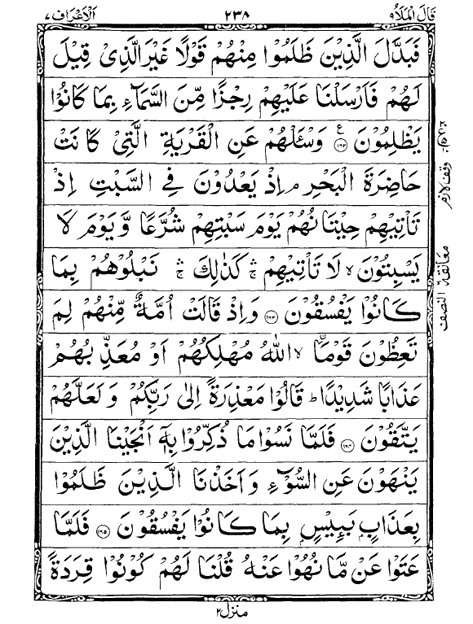 قَالَ الْمَلَاُ ۹
۲۳۸
اَلْاَعْرَاف ۷
فَبَدَّلَ الَّذِيْنَ ظَلَمُوْا مِنْهُمْ قَوْلًا غَيْرَ الَّذِيْ قِيْلَ
لَهُمْ فَاَرْسَلْنَا عَلَيْهِمْ رِجْزًا مِّنَ السَّمَآءِ بِمَا كَانُوْا
يَظْلِمُوْنَ ۝۱۶۲ ع وَسْـَٔلْهُمْ عَنِ الْقَرْيَةِ الَّتِيْ كَانَتْ
حَاضِرَةَ الْبَحْرِ ۘ اِذْ يَعْدُوْنَ فِي السَّبْتِ اِذْ
تَاْتِيْهِمْ حِيْتَانُهُمْ يَوْمَ سَبْتِهِمْ شُرَّعًا وَّ يَوْمَ لَا
يَسْبِتُوْنَ ۙ لَا تَاْتِيْهِمْ ۛ كَذٰلِكَ ۛ نَبْلُوْهُمْ بِمَا
كَانُوْا يَفْسُقُوْنَ ۝۱۶۳ وَاِذْ قَالَتْ اُمَّةٌ مِّنْهُمْ لِمَ
تَعِظُوْنَ قَوْمَا ۙ اللّٰهُ مُهْلِكُهُمْ اَوْ مُعَذِّبُهُمْ
عَذَابًا شَدِيْدًا ؕ قَالُوْا مَعْذِرَةً اِلٰى رَبِّكُمْ وَ لَعَلَّهُمْ
يَتَّقُوْنَ ۝۱۶۴ فَلَمَّا نَسُوْا مَا ذُكِّرُوْا بِهٖٓ اَنْجَيْنَا الَّذِيْنَ
يَنْهَوْنَ عَنِ السُّوْٓءِ وَ اَخَذْنَا الَّذِيْنَ ظَلَمُوْا
بِعَذَابٍۭ بَـِٔيْسٍۭ بِمَا كَانُوْا يَفْسُقُوْنَ ۝۱۶۵ فَلَمَّا
عَتَوْا عَنْ مَّا نُهُوْا عَنْهُ قُلْنَا لَهُمْ كُوْنُوْا قِرَدَةً
وقف لازم
معانقة
النصف
منزل ۲